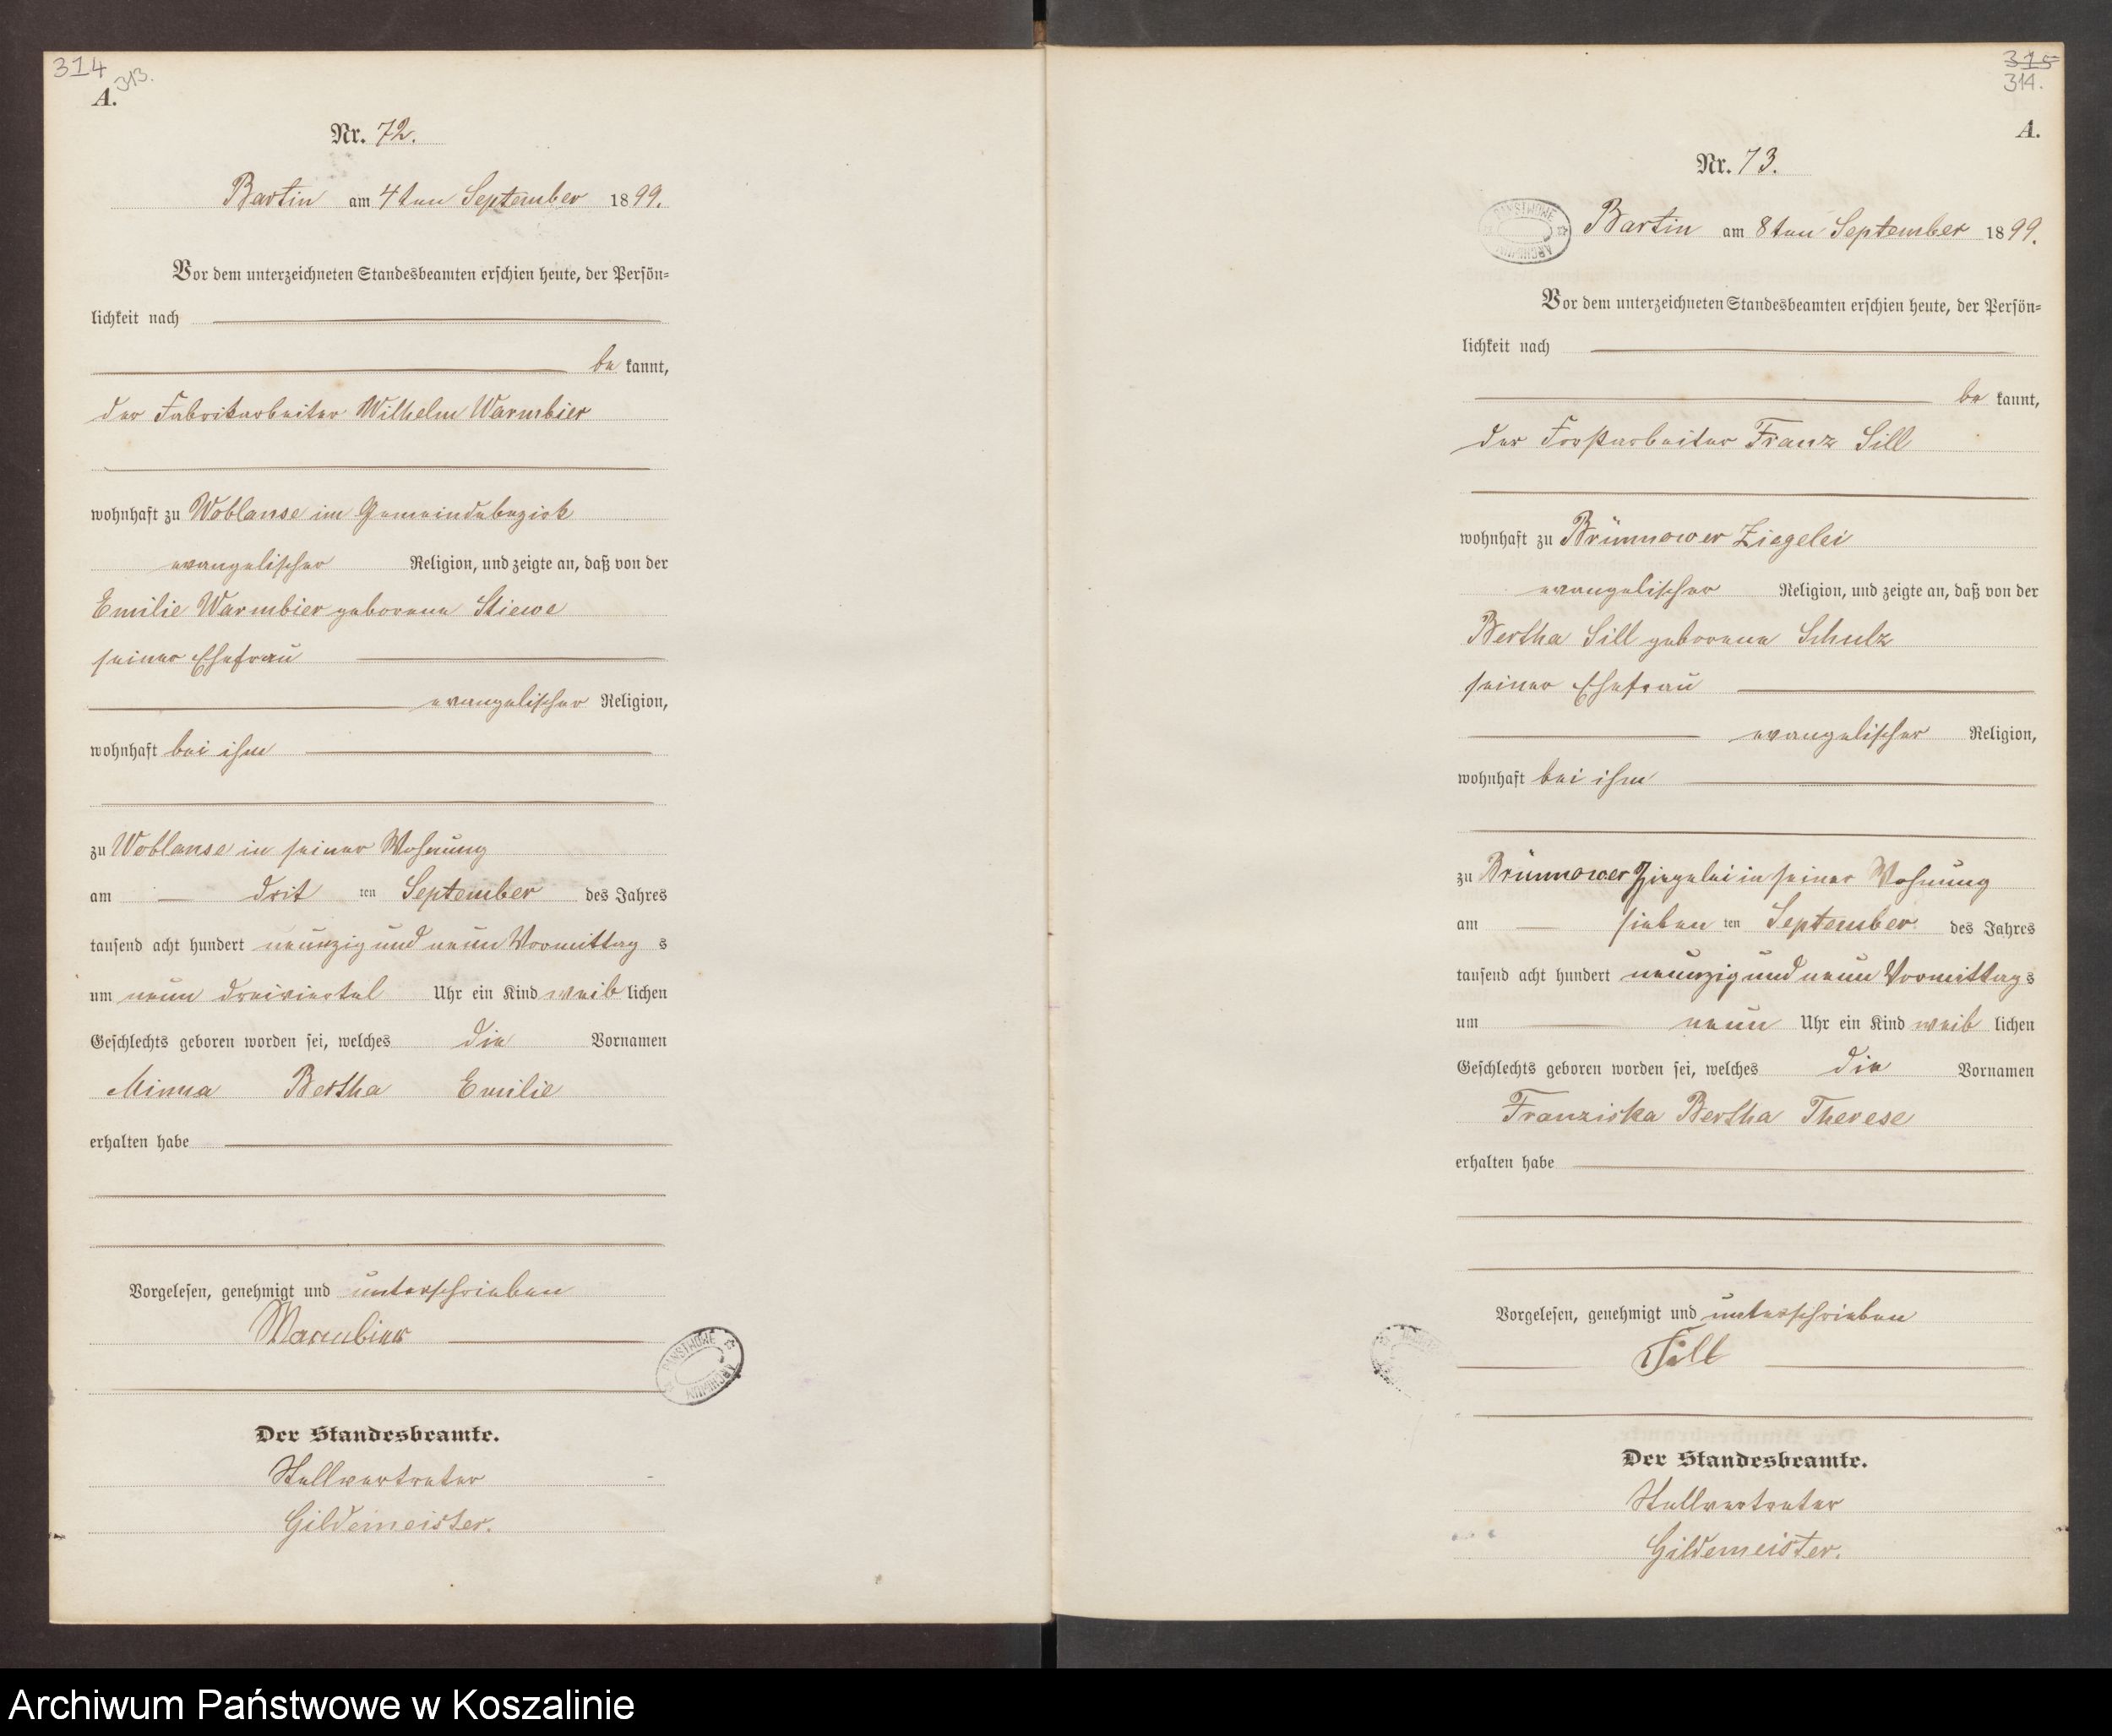 314
313.
A.
Nr. 72.
Bartin am 4ten September 1899.
Vor dem unterzeichneten Standesbeamten erschien heute, der Persön=
lichkeit nach
be kannt,
der Fabrikarbeiter Wilhelm Warmbier
wohnhaft zu Woblanse im Gemeindebezirk
evangelischer Religion, und zeigte an, daß von der
Emilie Warmbier geborene Stiewe
seiner Ehefrau
evangelischer Religion,
wohnhaft bei ihm
zu Woblanse in seiner Wohnung
am drit ten September des Jahres
tausend acht hundert neunzig und neun Vormittag s
um neun dreiviertel Uhr ein Kind weib lichen
Geschlechts geboren worden sei, welches die Vornamen
Minna Bertha Emilie
erhalten habe
Vorgelesen, genehmigt und unterschrieben
Warmbier
PANSTWOWE ARCHIWUM
Der Standesbeamte.
Stellvertreter
Gildemeister.
315
314.
A.
Nr. 73.
PANSTWOWE ARCHIWUM
Bartin am 8ten September 1899.
Vor dem unterzeichneten Standesbeamten erschien heute, der Persön=
lichkeit nach
be kannt,
der Forstarbeiter Franz Sill
wohnhaft zu Brünnower Ziegelei
evangelischer Religion, und zeigte an, daß von der
Bertha Sill geborene Schulz
seiner Ehefrau
evangelischer Religion,
wohnhaft bei ihm
zu Brünnower Ziegelei in seiner Wohnung
am sieben ten September des Jahres
tausend acht hundert neunzig und neun Vormittag s
um neun Uhr ein Kind weib lichen
Geschlechts geboren worden sei, welches die Vornamen
Franziska Bertha Therese
erhalten habe
Vorgelesen, genehmigt und unterschrieben
Sill
Der Standesbeamte.
Stellvertreter
Gildemeister.
Archiwum Państwowe w Koszalinie